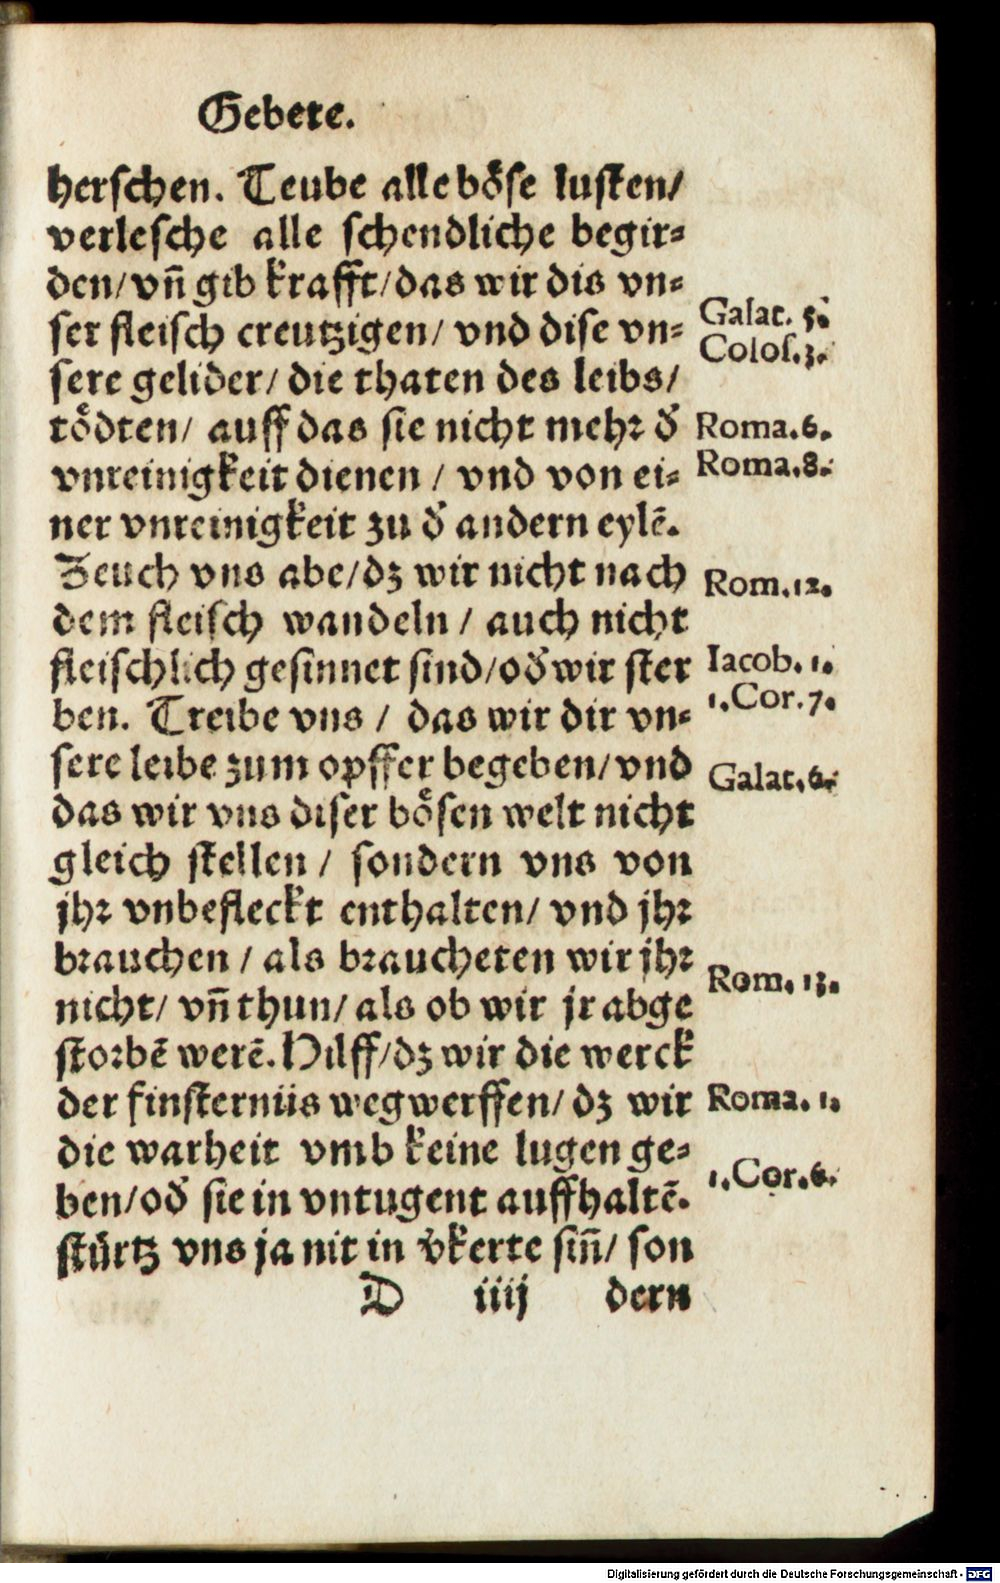 Gebete.
herschen. Teube alle böse lusten/
verlesche alle schendliche begir⸗
den/ vñ gib krafft/ das wir dis vn⸗
ser fleisch creutzigen/ vnd dise vn⸗
Galat. 5.
Colos. 3.
sere gelider/ die thaten des leibs/
tödten/ auff das sie nicht mehr d̓
Roma. 6.
vnreinigkeit dienen / vnd von ei⸗
Roma. 8.
ner vnreinigkeit zu d̓ andern eylē.
Zeuch vns abe/ dz wir nicht nach
Rom. 12.
dem fleisch wandeln / auch nicht
fleischlich gesinnet sind/ od̓ wir ster
Iacob. 1.
ben. Treibe vns / das wir dir vn⸗
1. Cor. 7.
sere leibe zum opffer begeben/ vnd
Galat. 6.
das wir vns diser bösen welt nicht
gleich stellen / sondern vns von
jhr vnbefleckt enthalten/ vnd jhr
brauchen / als braucheten wir jhr
Rom. 13.
nicht/ vñ thun/ als ob wir jr abge
storbē werē. Hilff/ dz wir die werck
der finsterniis wegwerffen/ dz wir
Roma. 1.
die warheit vmb keine lugen ge⸗
ben/ od̓ sie in vntugent auffhaltē.
1. Cor. 6.
stürtz vns ja nit in v̓kerte siñ/ son
D iiij dern
Digitalisierung gefördert durch die Deutsche Forschungsgemeinschaft - DFG